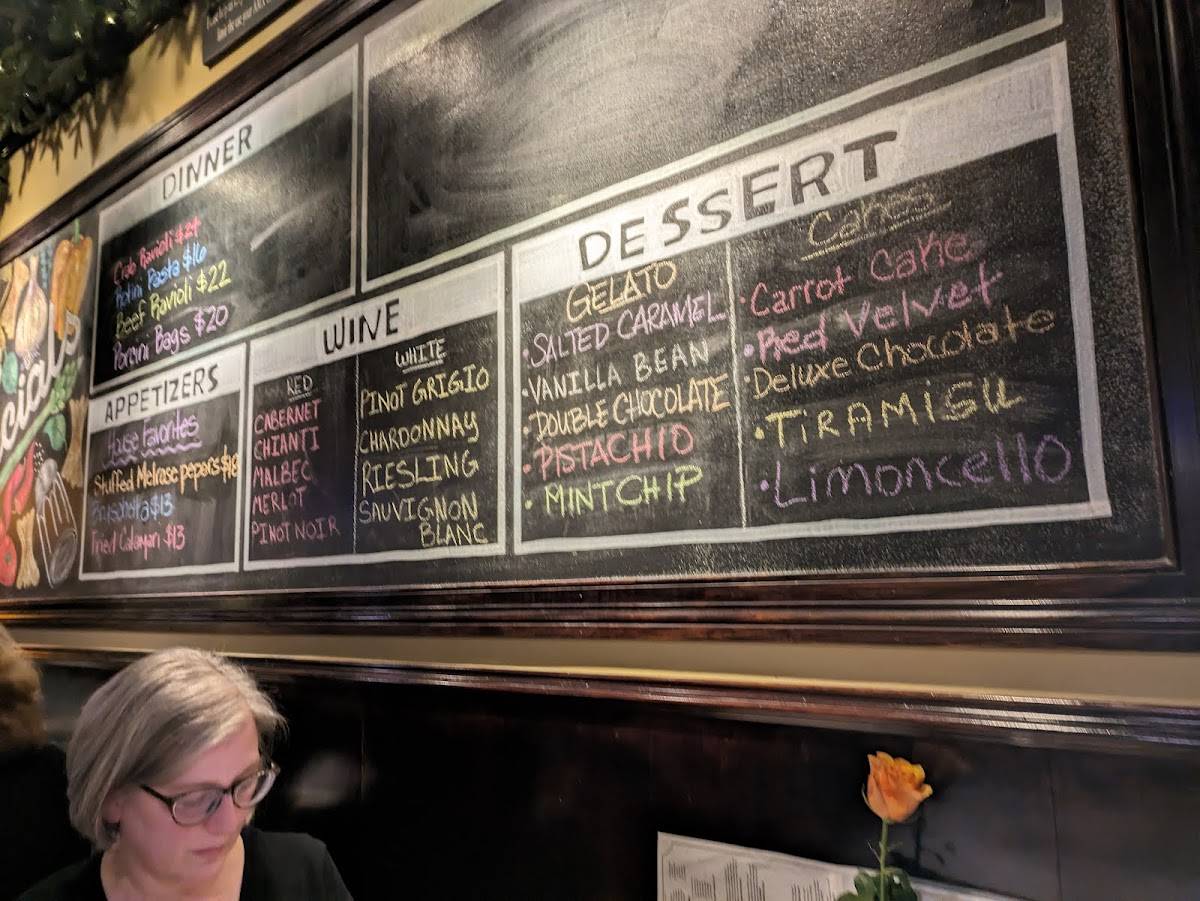 DINNER
Crab Ravioli $24
Rotini Pasta $16
Beef Ravioli $22
Porcini Bags $20
cials
APPETIZERS
House Favorites
Stuffed Melrose pepers $18
$13
Fried Calamari $13
WINE
RED
CABERNET
CHIANTI
MALBEC
MERLOT
PINOT NOIR
WHITE
PINOT GRIGIO
CHARDONNAY
RIESLING
SAUVIGNON
BLANC
DESSERT
GELATO
·SALTED CARAMEL
·VANILLA BEAN
·DOUBLE CHOCOLATE
·PISTACHIO
·MINT CHIP
Cakes
·Carrot Cake
·Red Velvet
·Deluxe Chocolate
·TiRAMiSU
·Limoncello